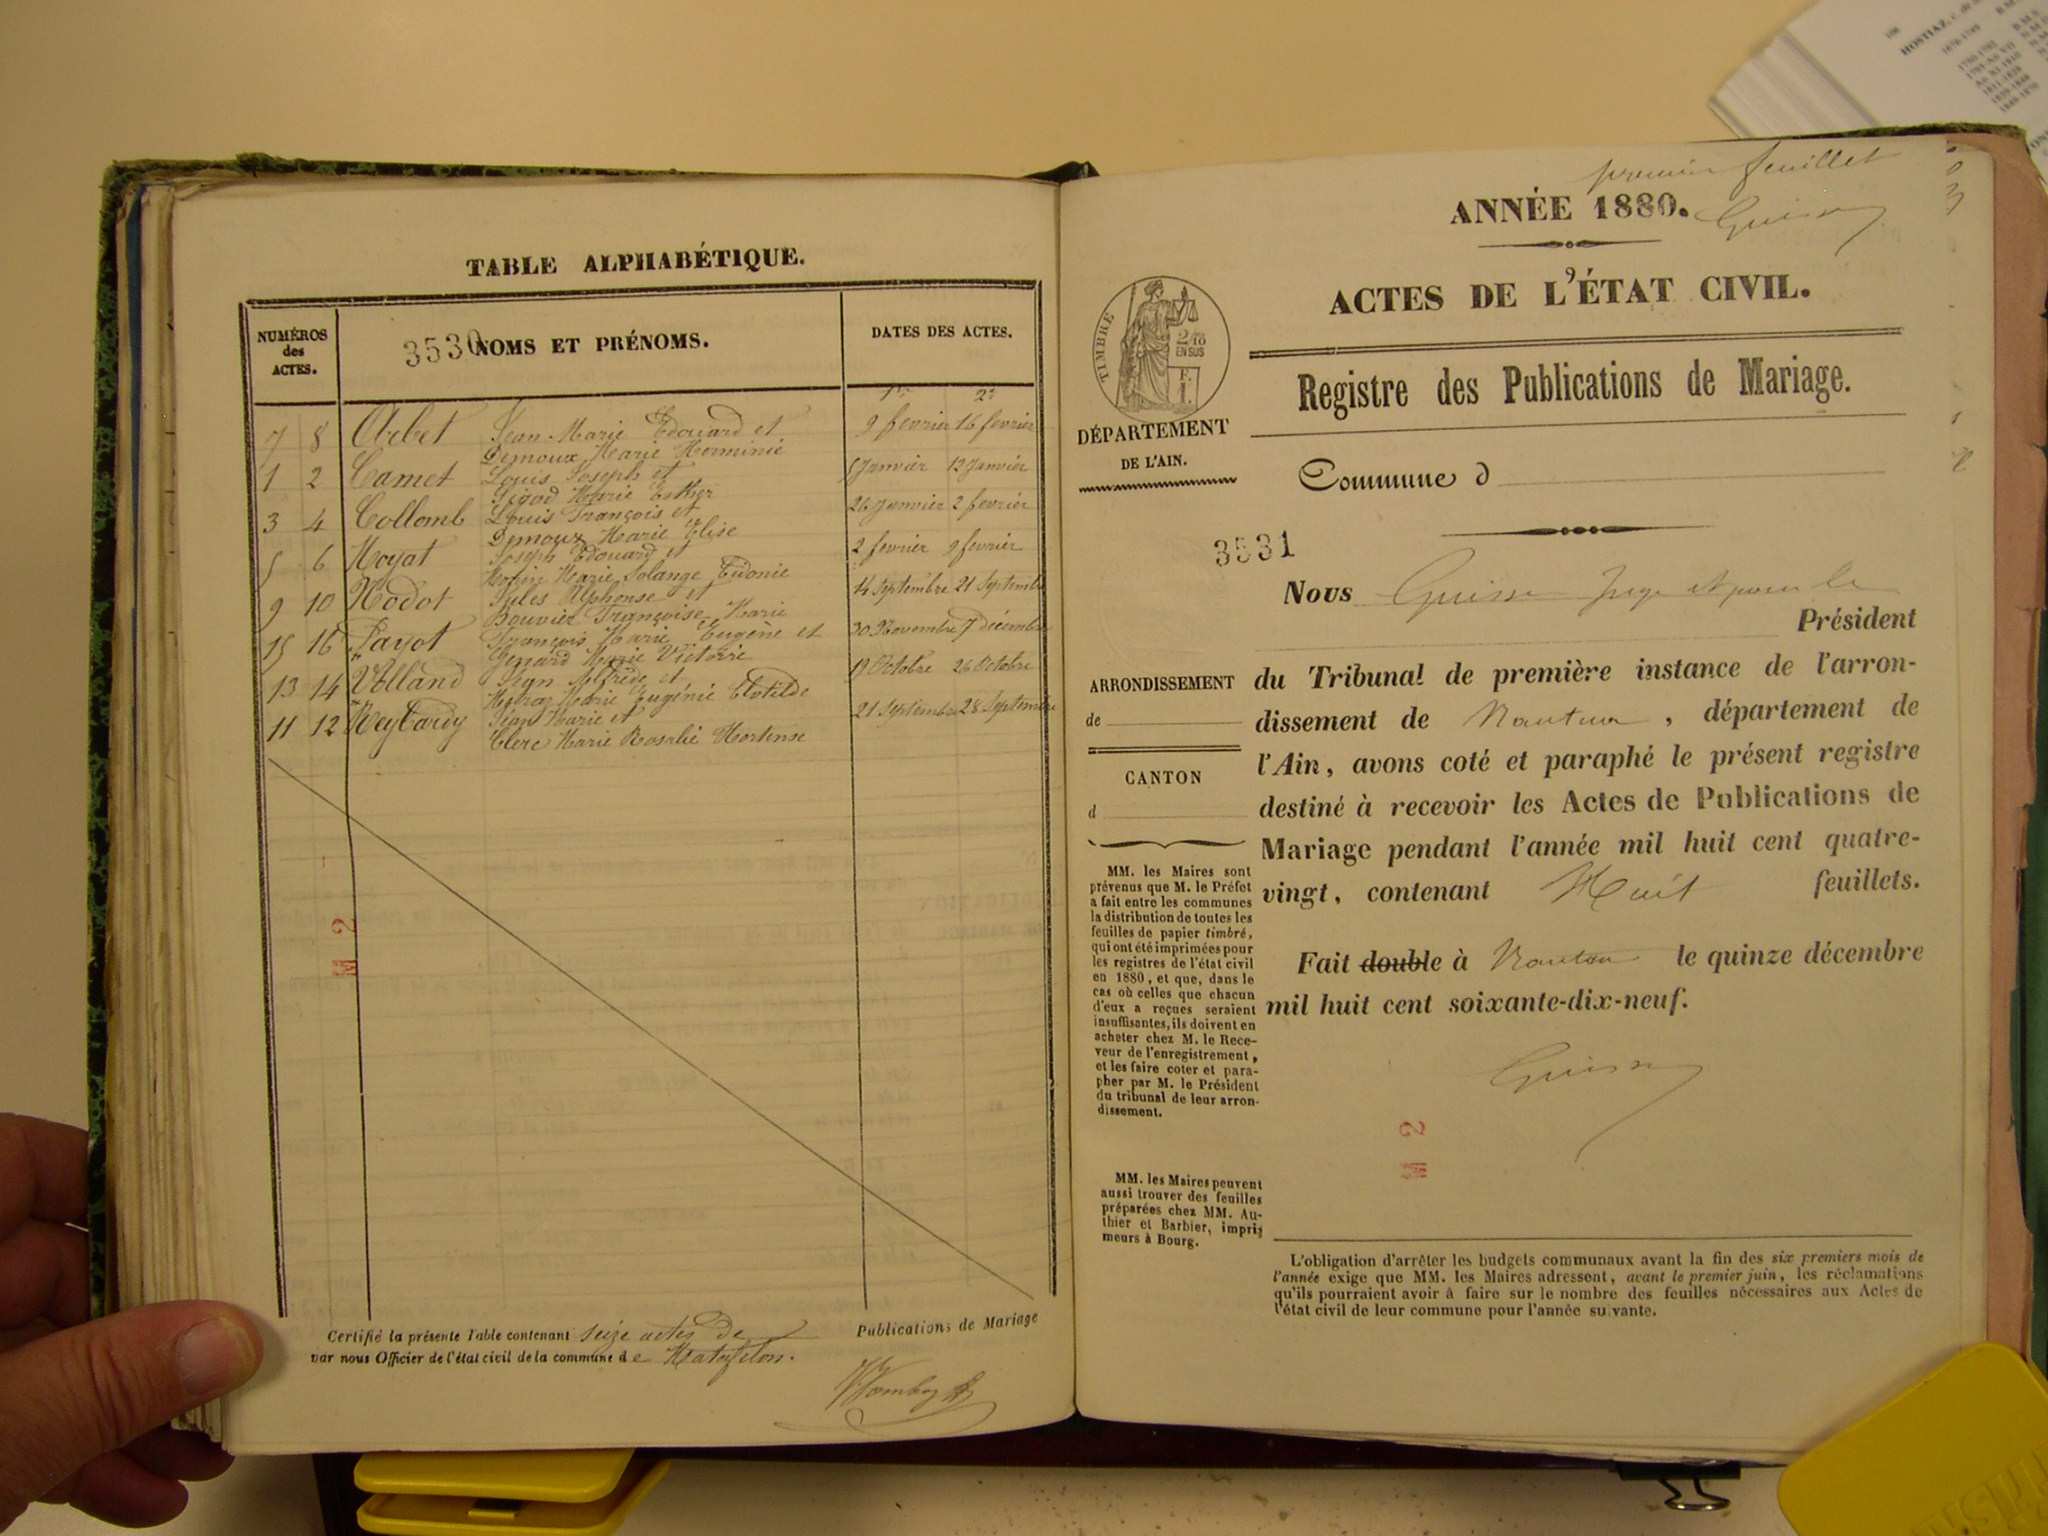 TABLE ALPHABÉTIQUE.
NUMÉROS
des
ACTES.
3530
NOMS ET PRÉNOMS.
DATES DES ACTES.
1re 2e
7 8 Arbet Jean Marie Edouard et 9 fevrier 16 fevrier
Demoux Marie Herminie
1 2 Camet Louis Joseph et 5 Janvier 12 Janvier
Sigod Marie Esther
3 4 Collomb Louis François et 26 Janvier 2 fevrier
Demoux Marie Elise
5 6 Moyat Joseph Edouard et 2 fevrier 9 fevrier
Marie Solange
9 10 Nodot Jules Alphonse et 14 Septembre 21 Septembre
Bouvier Françoise Marie
15 16 Payot François Marie Eugène et 30 Novembre 7 décembre
Genard Marie Victoire
13 14 Volland Jean Alfrède et 19 Octobre 26 Octobre
Marie Eugénie Clotilde
11 12 Reybardy Jean Marie et 21 Septembre 28 Septembre
Clerc Marie Rosalie Hortense
M 2
Certifié la présente Table contenant seize actes de Publications de Mariage
par nous Officier de l'état civil de la commune de Matafelon.
premier feuillet
ANNÉE 1880.
ACTES DE L'ÉTAT CIVIL.
TIMBRE
2/10
EN SUS
F.
1.
Registre des Publications de Mariage.
DÉPARTEMENT
DE L'AIN.
Commune d
3531
Nous Juge et pour le
Président
ARRONDISSEMENT
de
CANTON
d
du Tribunal de première instance de l'arron-
dissement de Nantua, département de
l'Ain, avons coté et paraphé le présent registre
destiné à recevoir les Actes de Publications de
Mariage pendant l'année mil huit cent quatre-
vingt, contenant Huit feuillets.
Fait double à Nantua le quinze décembre
mil huit cent soixante-dix-neuf.
MM. les Maires sont
prévenus que M. le Préfet
a fait entre les communes
la distribution de toutes les
feuilles de papier timbré,
qui ont été imprimées pour
les registres de l'état civil
en 1880, et que, dans le
cas où celles que chacun
d'eux a reçues seraient
insuffisantes, ils doivent en
acheter chez M. le Rece-
veur de l'enregistrement,
et les faire coter et para-
pher par M. le Président
du tribunal de leur arron-
dissement.
M 2
MM. les Maires peuvent
aussi trouver des feuilles
préparées chez MM. Au-
thier et Barbier, impri-
meurs à Bourg.
L'obligation d'arrêter les budgets communaux avant la fin des six premiers mois de
l'année exige que MM. les Maires adressent, avant le premier juin, les réclamations
qu'ils pourraient avoir à faire sur le nombre des feuilles nécessaires aux Actes de
l'état civil de leur commune pour l'année suivante.